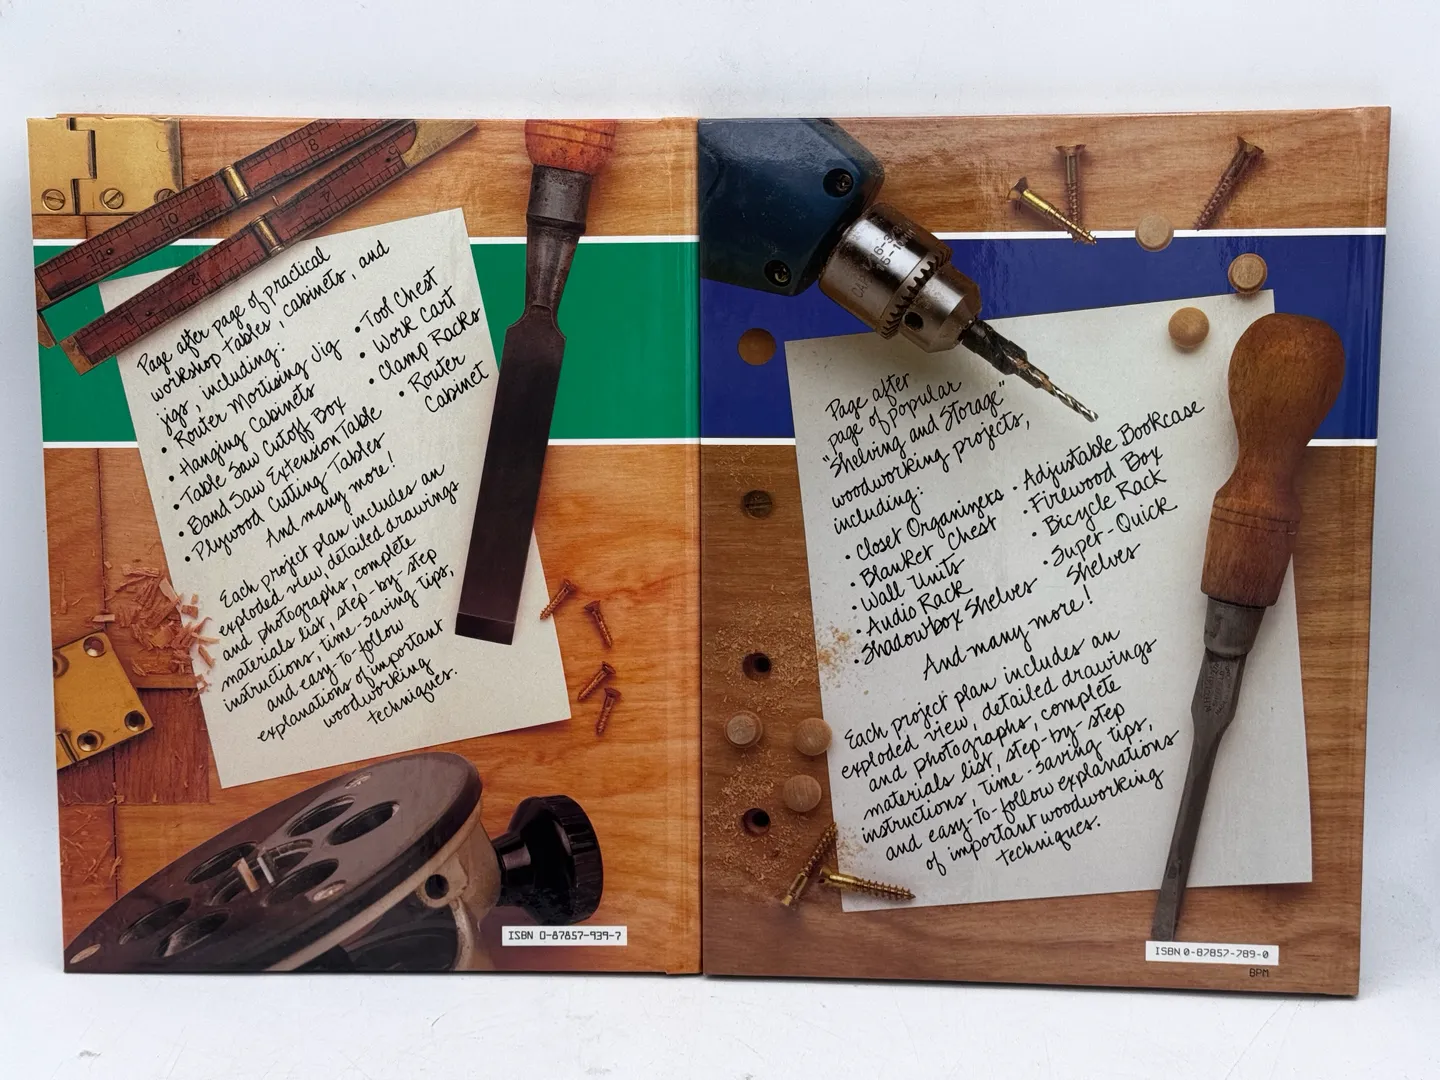 Page after page of practical
workshop tables, cabinets, and
jigs, including:
• Router Mortising Jig
• Hanging Cabinets
• Table Saw Cutoff Box
• Band Saw Extension Table
• Plywood Cutting Tables
• Tool Chest
• Work Cart
• Clamp Racks
• Router
Cabinet
And many more!
Each project plan includes an
exploded view, detailed drawings
and photographs, complete
materials list, step-by-step
instructions, time-saving tips,
and easy-to-follow
explanations of important
woodworking
techniques.
ISBN 0-87857-939-7
Page after
page of popular
"Shelving and Storage"
woodworking projects,
including:
• Closet Organizers
• Blanket Chest
• Wall Units
• Audio Rack
• Shadowbox Shelves
• Adjustable Bookcase
• Firewood Box
• Bicycle Rack
• Super-Quick
Shelves
And many more!
Each project plan includes an
exploded view, detailed drawings
and photographs, complete
materials list, step-by-step
instructions, time-saving tips,
and easy-to-follow explanations
of important woodworking
techniques.
ISBN 0-87857-789-0
BPM